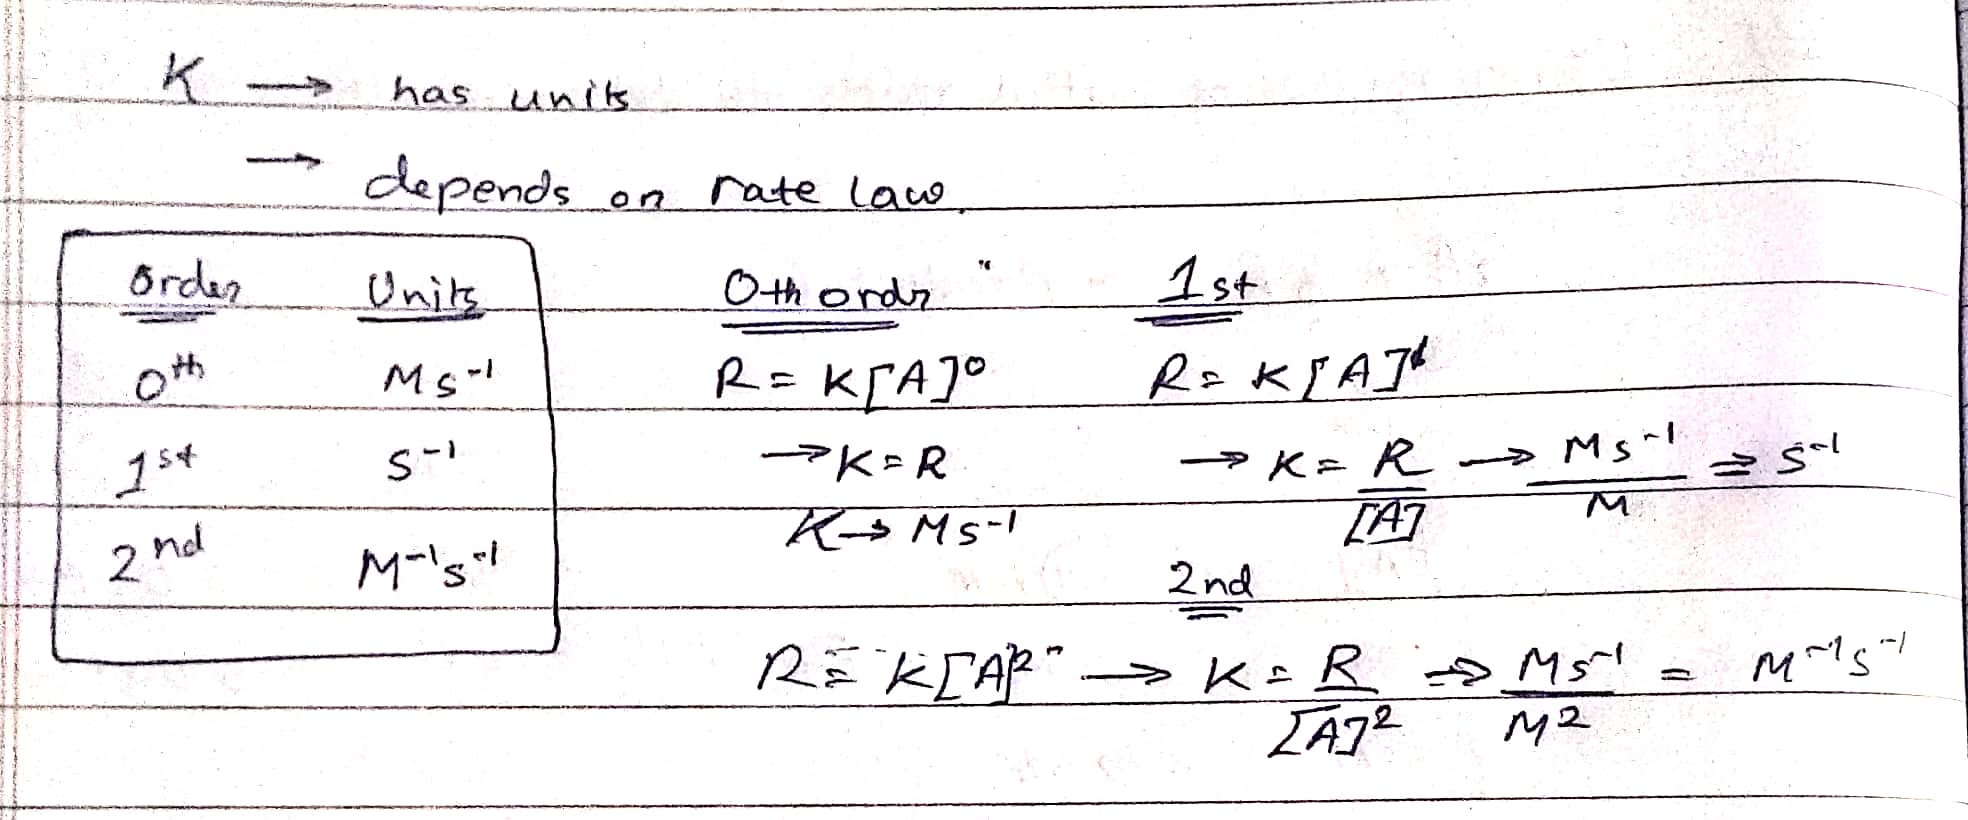 K → has units
→ depends on rate law
Order Units
0th Ms-1
1st S-1
2nd M-1s-1
0th ordr
R = K[A]0
→ K = R
K → Ms-1
1st
R = K[A]1
→ K = R/[A] → Ms-1/M ⇒ S-1
2nd
R = K[A]2 → K = R/[A]2 ⇒ Ms-1/M2 = M-1s-1